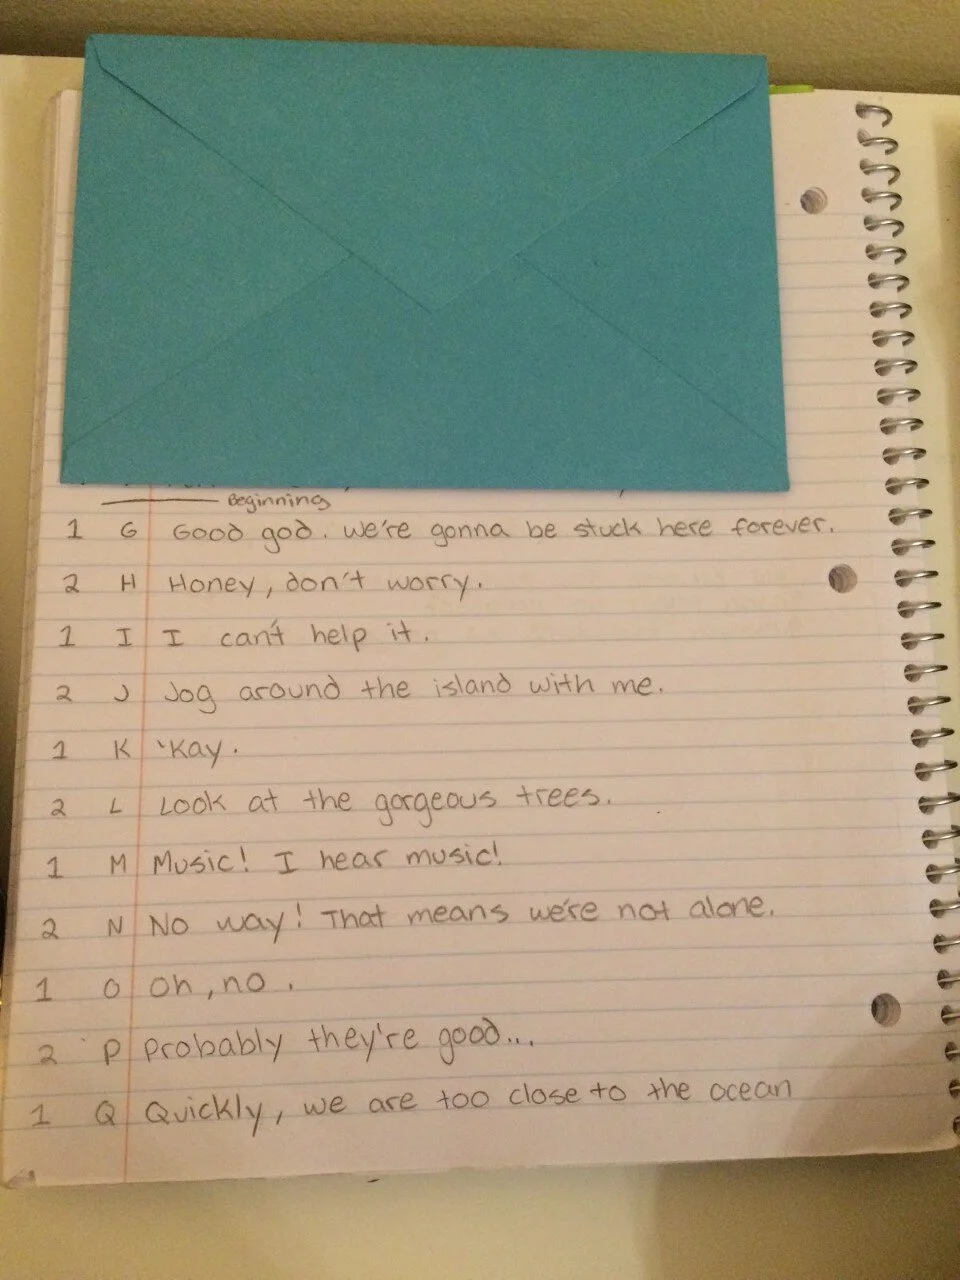 Beginning
1 G Good god. We're gonna be stuck here forever.
2 H Honey, don't worry.
1 I I can't help it.
2 J Jog around the island with me.
1 K 'Kay.
2 L Look at the gorgeous trees.
1 M Music! I hear music!
2 N No way! That means we're not alone.
1 O Oh, no.
2 P Probably they're good...
1 Q Quickly, we are too close to the ocean